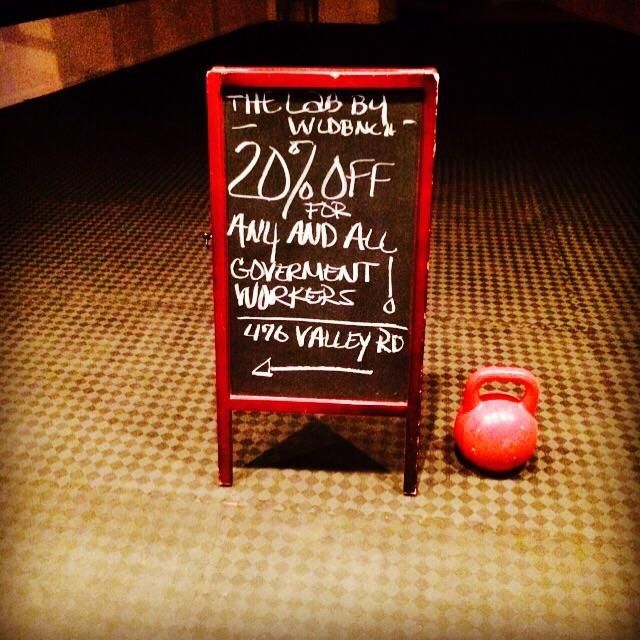 THE LAB BY
- WLDBNCH -
20% OFF
FOR
ANY AND ALL
GOVERMENT
WORKERS!
476 VALLEY RD